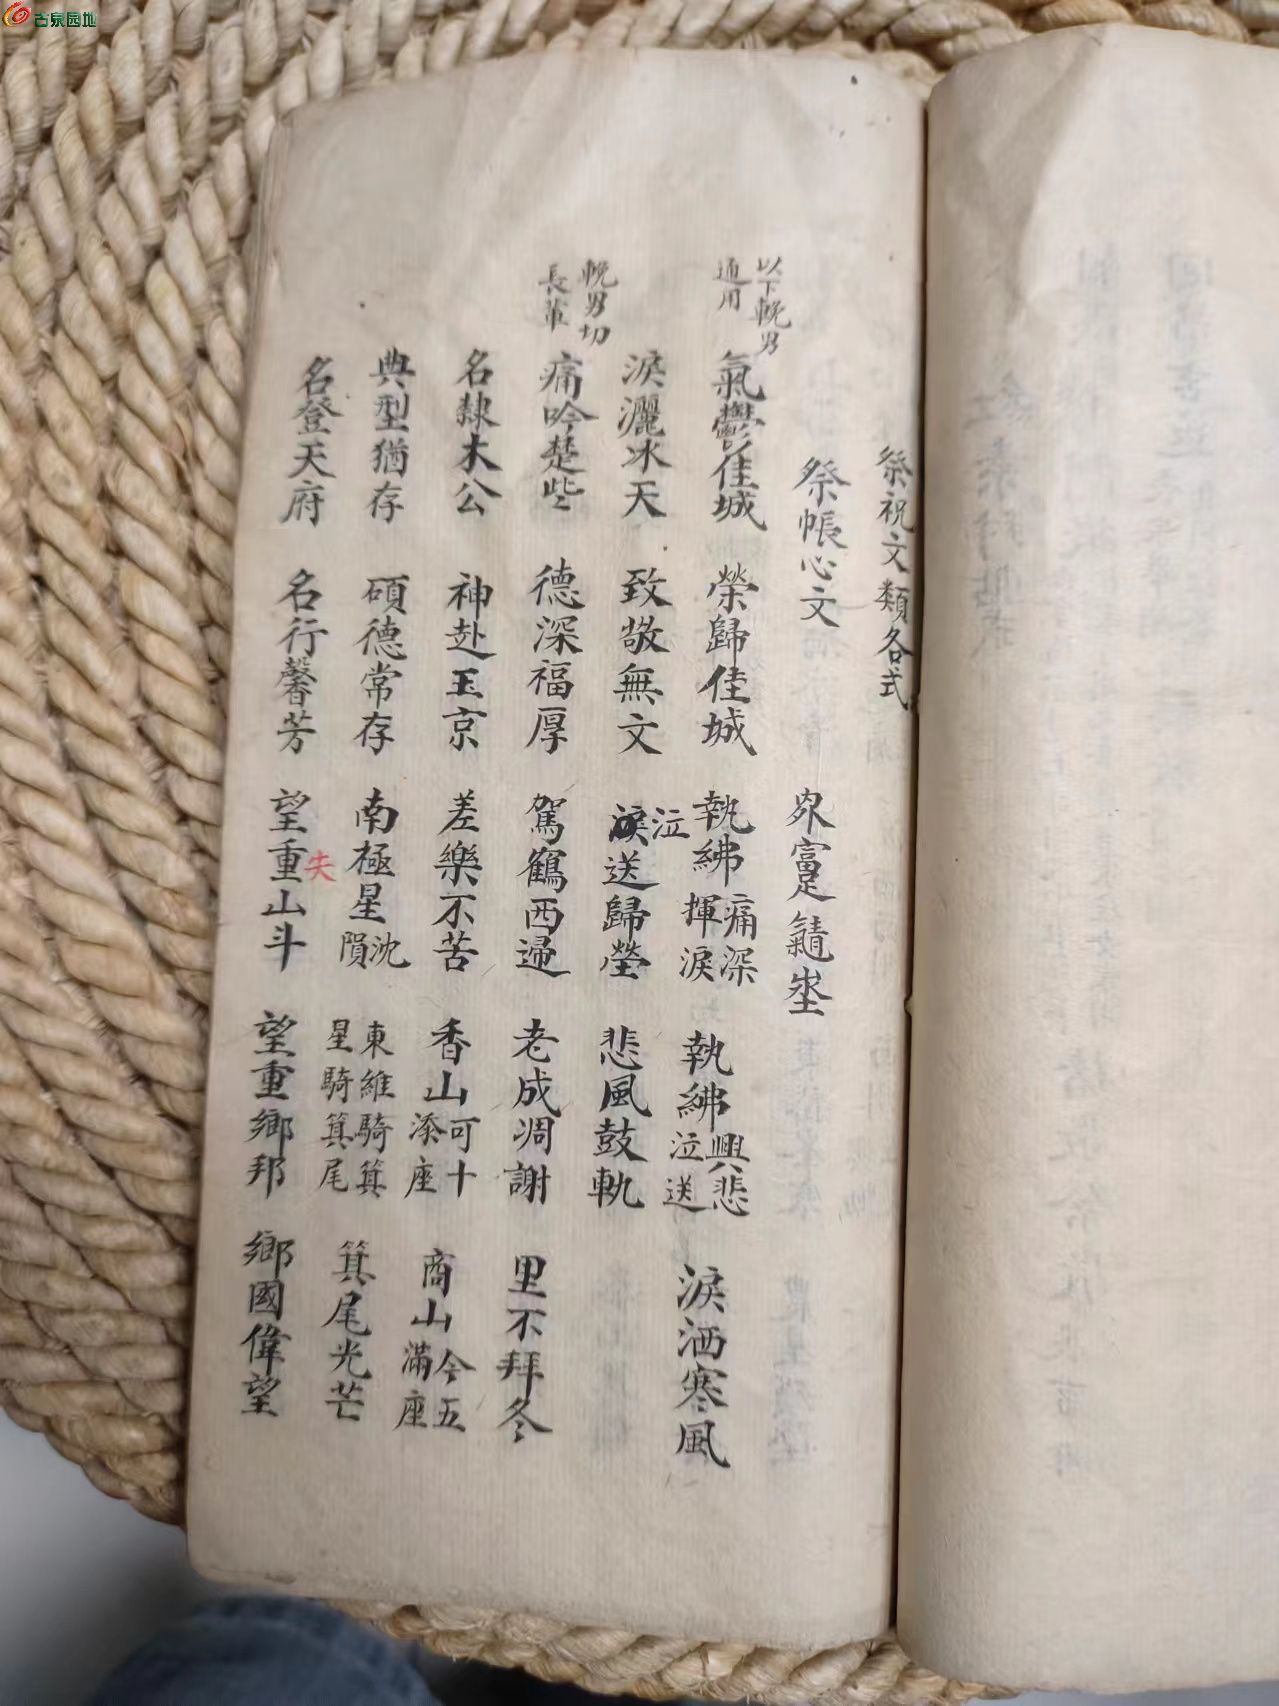 祭祝文類各式
祭帳心文
以下輓男
通用
氣鬱佳城 榮歸佳城 執紼痛深 揮淚 執紼興悲 泣送 淚洒寒風
淚灑冰天 致敬無文 泣淚送歸塋 悲風鼓軌
輓男切
長輩
痛吟楚些 德深福厚 駕鶴西歸 老成凋謝 里不拜冬
名隸木公 神赴玉京 差樂不苦 香山可十 添座 商山今五 滿座
典型猶存 碩德常存 南極星沈 隕 東維騎箕 星騎箕尾 箕尾光芒
名登天府 名行馨芳 望重山斗 望重鄉邦 鄉國偉望
失
古泉园地